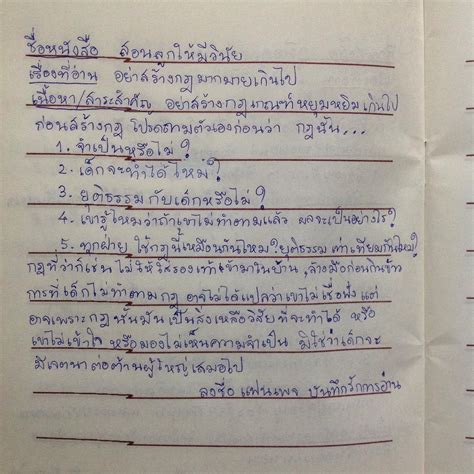 ชื่อหนังสือ สอนลูกให้มีวินัย
เรื่องที่อ่าน อย่าสร้างกฎมากมายเกินไป
เนื้อหา/สาระสำคัญ อย่าสร้างกฎเกณฑ์หยุมหยิมเกินไป
ก่อนสร้างกฎ โปรดถามตัวเองก่อนว่า กฎนั้น...
1. จำเป็นหรือไม่?
2. เด็กจะทำได้ไหม?
3. ยุติธรรมกับเด็กหรือไม่?
4. เขารู้ไหมว่าถ้าเขาไม่ทำตามแล้ว ผลจะเป็นอย่างไร?
5. ทุกฝ่าย ใช้กฎนี้เหมือนกันไหม? ยุติธรรม เท่าเทียมกันไหม?
กฎที่ว่าก็เช่น ไม่ให้ใส่รองเท้าเข้ามาในบ้าน, ล้างมือก่อนกินข้าว
การที่เด็กไม่ทำตามกฎ อาจไม่ได้แปลว่าเขาไม่เชื่อฟัง แต่
อาจเพราะกฎนั้นมันเป็นสิ่งเหลือวิสัยที่จะทำได้ หรือ
เขาไม่เข้าใจ หรือมองไม่เห็นความจำเป็น มิใช่ว่าเด็กจะ
มีเจตนาต่อต้านผู้ใหญ่เสมอไป
ลงชื่อ แฟนเพจ บันทึกรักการอ่าน